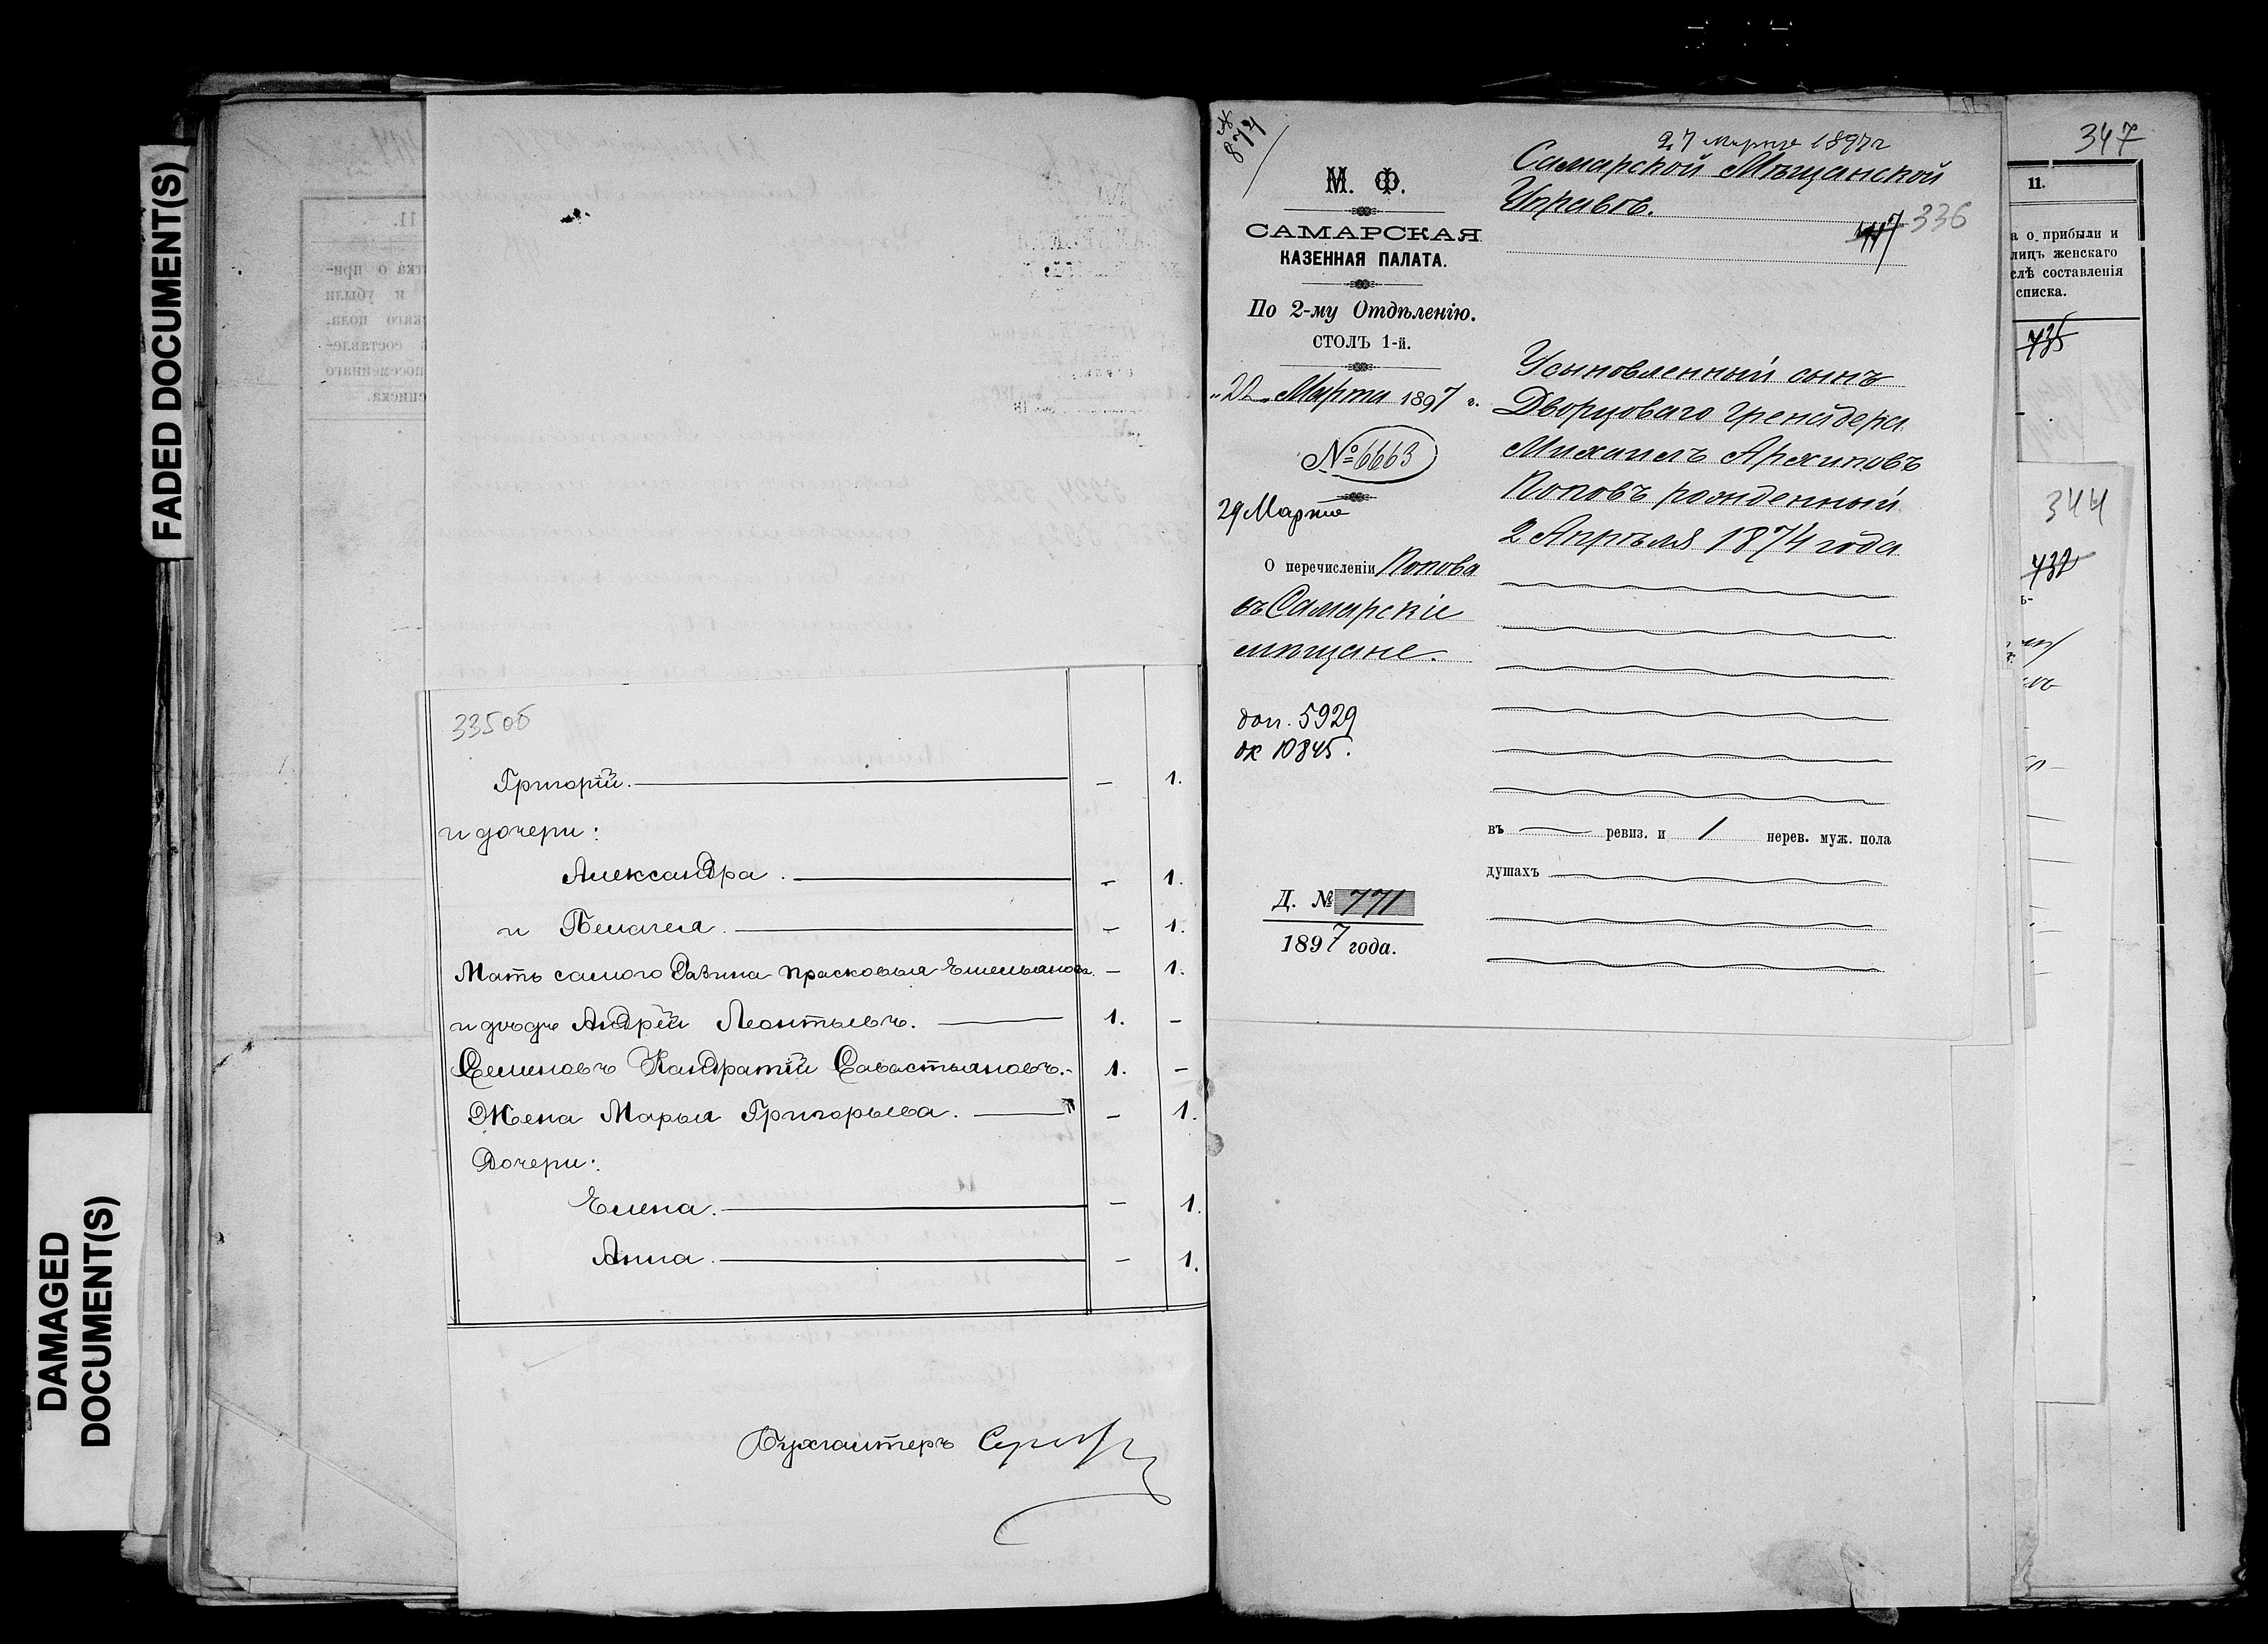 FADED DOCUMENT(S)
DAMAGED
DOCUMENT(S)
335об
Григорій. — 1.
и дочери:
Александра. — 1.
и Пелагея. — 1.
Мать самого Разина Прасковья Емельянова. — 1.
и дядя Андрей Леонтьевъ. 1. —
Селиновъ Кандратій Савастьяновъ. 1. —
Жена Марья Григорьева. — 1.
Дочери:
Елена. — 1.
Анна. — 1.
Бухгалтеръ
№ 874
М. Ф.
САМАРСКАЯ
КАЗЕННАЯ ПАЛАТА.
По 2-му Отдѣленію.
СТОЛЪ 1-й.
„22„ Марта 1897 г.
№ 6663
29 Марта
О перечисленіи Попова
въ Самарскіе
мѣщане.
доп. 5929
ок 10845.
Д. № 771
1897 года.
27 Марта 1897 г
Самарской Мѣщанской
Управѣ.
336
Усыновленный сынъ
Дворцоваго гренадера
Михаилъ Архиповъ
Поповъ рожденный
2 Апрѣля 1874 года
въ — ревиз. и 1 нерев. муж. пола
душахъ
347
11.
а о прибыли и
лицъ женскаго
слѣ составленія
списка.
735
344
732
11.